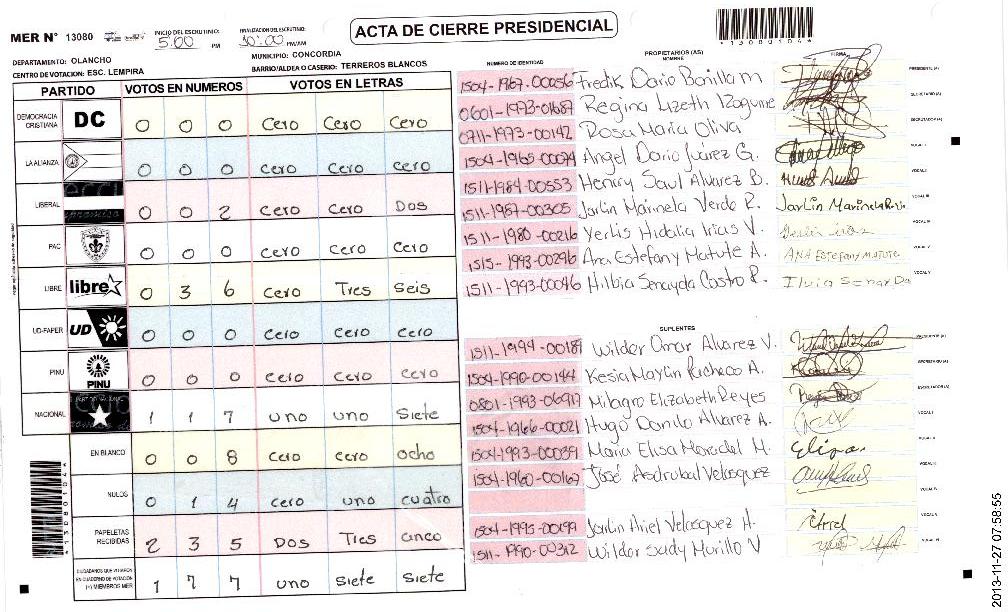 ACTA DE CIERRE PRESIDENCIAL
MER N° 13080
INICIO DEL ESCRUTINIO: 5:00 PM
FINALIZACION DEL ESCRUTINIO: 10:00 PM/AM
*13080104*
DEPARTAMENTO: OLANCHO
MUNICIPIO: CONCORDIA
CENTRO DE VOTACION: ESC. LEMPIRA
BARRIO/ALDEA O CASERIO: TERREROS BLANCOS
PARTIDO VOTOS EN NUMEROS VOTOS EN LETRAS
DEMOCRACIA CRISTIANA DC 0 0 0 cero cero cero
LA ALIANZA 0 0 0 cero cero cero
LIBERAL 0 0 2 cero cero Dos
PAC 0 0 0 cero cero cero
LIBRE libre 0 3 6 cero Tres seis
UD-FAPER UD 0 0 0 cero cero cero
PINU PINU 0 0 0 cero cero cero
NACIONAL 1 1 7 uno uno siete
EN BLANCO 0 0 8 cero cero ocho
NULOS 0 1 4 cero uno cuatro
PAPELETAS RECIBIDAS 2 3 5 Dos Tres cinco
CIUDADANOS QUE VOTARON EN CUADERNO DE VOTACION (+) MIEMBROS MER 1 7 7 uno siete siete
*13080104*
PROPIETARIOS (AS)
NUMERO DE IDENTIDAD NOMBRE FIRMA
1504-1967-00056 Fredik Dario Bonilla m PRESIDENTE (A)
0601-1973-01687 Regina Lizeth Izaguirre SECRETARIO (A)
0711-1973-00142 Rosa Maria Oliva ESCRUTADOR (A)
1504-1965-00074 Angel Dario Juárez G. VOCAL I
1511-1984-00553 Henrry Saul Alvarez B. VOCAL II
1511-1987-00305 Jarlin Marinela Verde R. Jarlin Marinela VOCAL III
1511-1980-00216 Yerlis Hidalia Irias V. VOCAL IV
1515-1993-00296 Ana Estefany Matute A. ANA Estefany Matute VOCAL V
1511-1993-00046 Hilbia Senayda Castro R. VOCAL VI
SUPLENTES
1511-1994-00181 Wilder Omar Alvarez V. PRESIDENTE (A)
1504-1990-00144 Kesia Maylin Pacheco A. SECRETARIO (A)
0801-1993-06917 Milagro Elizabeth Reyes ESCRUTADOR (A)
1504-1966-00021 Hugo Danilo Alvarez A. VOCAL I
1504-1993-00039 Maria Elisa Meradel M. Elisa VOCAL II
1504-1960-00167 José Asdrubal Velasquez VOCAL III
VOCAL IV
1504-1995-00199 Jarlin Ariel Velasquez H. VOCAL V
1511-1990-00312 Wilder Sady Murillo V VOCAL VI
2013-11-27 07:58:55